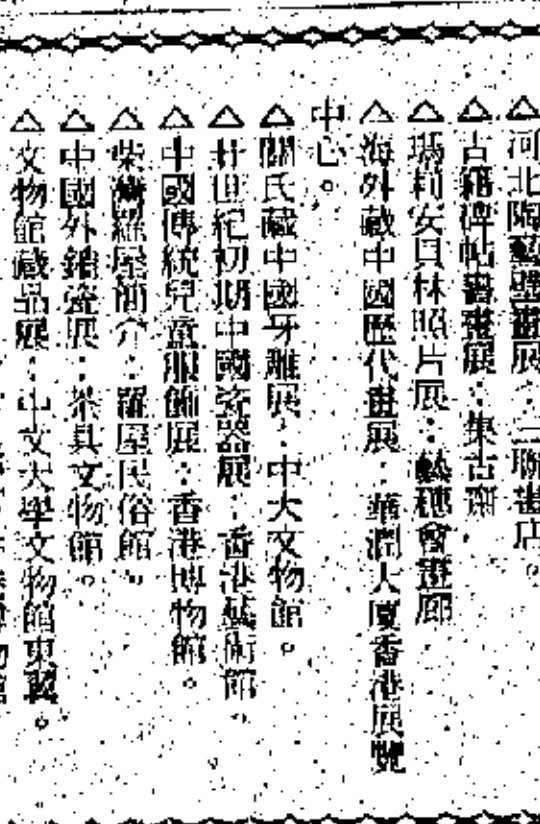 △河北陶藝壁畫展：三聯書店。
△古籍碑帖書畫展：集古齋。
△瑪莉安貝林照片展：藝穗會畫廊
△海外藏中國歷代畫展：華潤大廈香港展覽
中心。
△關氏藏中國牙雕展：中大文物館。
△廿世紀初期中國瓷器展：香港藝術館。
△中國傳統兒童服飾展：香港博物館。
△柴灣羅屋簡介：羅屋民俗館。
△中國外銷瓷展：茶具文物館。
△文物館藏品展：中文大學文物館東翼。